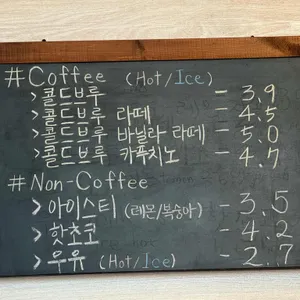 #Coffee (Hot/Ice)
>콜드브루 - 3.9
>콜드브루 라떼 - 4.5
>콜드브루 바닐라 라떼 - 5.0
>콜드브루 카푹치노 - 4.7
#Non-Coffee
>아이스티 (레몬/복숭아) - 3.5
>핫초코 - 4.2
>우유 (Hot/Ice) - 2.7